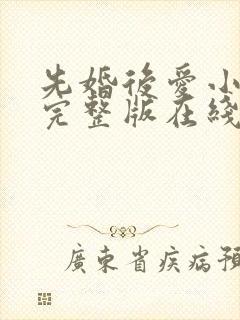 先婚後愛小
完整版在綫
廣東省疾病預